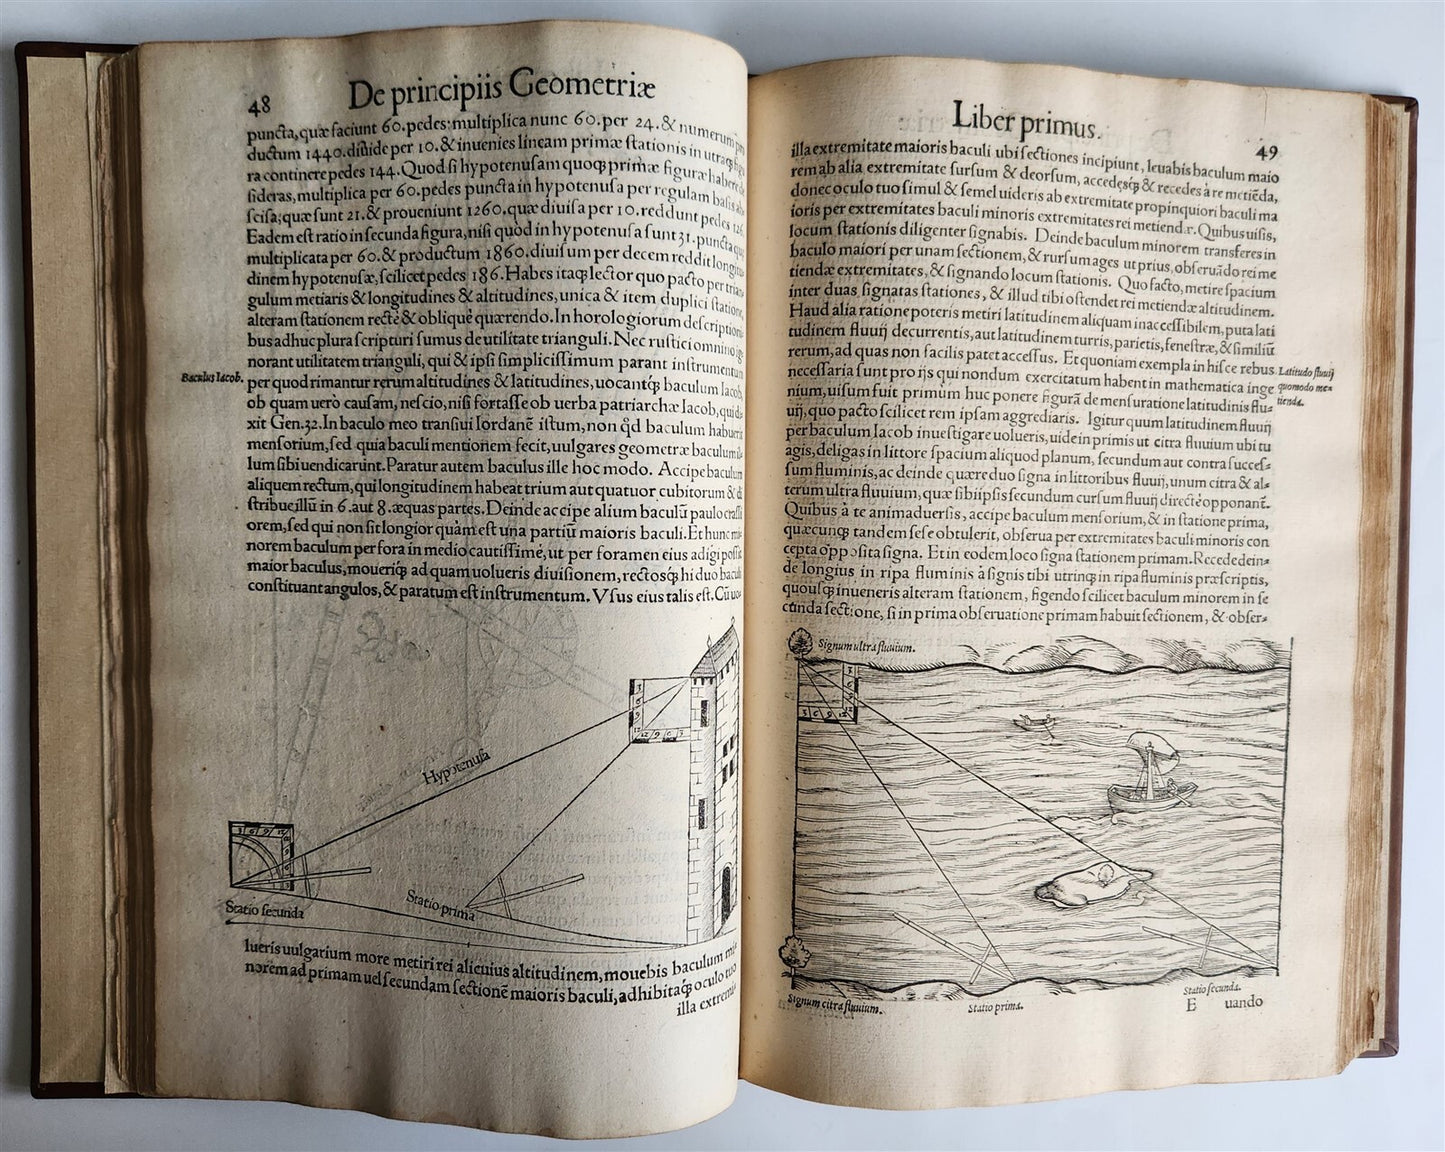 48
De principiis Geometriæ
puncta, quæ faciunt 60. pedes: multiplica nunc 60. per 24. & numerum pro
ductum 1440. diuide per 10. & inuenies lineam primæ stationis in utraq; figu
ra continere pedes 144. Quod si hypotenusam quoq; primæ figuræ habere de
sideras, multiplica per 60. pedes puncta in hypotenusa per regulam basis ab
scisa; quæ sunt 21. & proueniunt 1260. quæ diuisa per 10. reddunt pedes 126.
Eadem est ratio in secunda figura, nisi quod in hypotenusa sunt 31. puncta quę
multiplicata per 60. & productum 1860. diuisum per decem reddit longitu
dinem hypotenusæ, scilicet pedes 186. Habes itaq; lector quo pacto per trian
gulum metiaris & longitudines & altitudines, unica & item duplici statione,
alteram stationem rectè & obliquè quærendo. In horologiorum descriptioni
bus adhuc plura scripturi sumus de utilitate trianguli. Nec rustici omnino ig
norant utilitatem trianguli, qui & ipsi simplicissimum parant instrumentum
Baculus Iacob.
per quod rimantur rerum altitudines & latitudines, uocantq; baculum Iacob,
ob quam uerò causam, nescio, nisi fortasse ob uerba patriarchæ Iacob, qui di
xit Gen. 32. In baculo meo transiui Iordanē istum, non qd baculum habuerit
mensorium, sed quia baculi mentionem fecit, uulgares geometræ baculum il
lum sibi uendicarunt. Paratur autem baculus ille hoc modo. Accipe baculum
aliquem rectum, qui longitudinem habeat trium aut quatuor cubitorum & di
stribue illū in 6. aut 8. æquas partes. Deinde accipe alium baculū paulo crassi
orem, sed qui non sit longior quàm est una partiū maioris baculi. Et hunc mi
norem baculum perfora in medio cautissimè, ut per foramen eius adigi possit
maior baculus, moueriq; ad quam uolueris diuisionem, rectosq; hi duo baculi
constituant angulos, & paratum est instrumentum. Vsus eius talis est. Cū uo
Hypotenusa
3 6 9 12
12 9 6 3
3 6 9 12
Statio secunda
Statio prima
lueris uulgarium more metiri rei alicuius altitudinem, mouebis baculum mi
norem ad primam uel secundam sectionē maioris baculi, adhibitaq; oculo tuo
illa extremi
Liber primus.
49
illa extremitate maioris baculi ubi sectiones incipiunt, leuabis baculum maio
rem ab alia extremitate sursum & deorsum, accedesq; & recedes à re metiēda,
donec oculo tuo simul & semel uideris ab extremitate propinquiori baculi ma
ioris per extremitates baculi minoris extremitates rei metiendæ. Quibus uisis,
locum stationis diligenter signabis. Deinde baculum minorem transferes in
baculo maiori per unam sectionem, & rursum ages ut prius, obseruādo rei me
tiendæ extremitates, & signando locum stationis. Quo facto, metire spacium
inter duas signatas stationes, & illud tibi ostendet rei metiendæ altitudinem.
Haud alia ratione poteris metiri latitudinem aliquam inaccessibilem, puta lati
tudinem fluuij decurrentis, aut latitudinem turris, parietis, fenestræ, & similiū
rerum, ad quas non facilis patet accessus. Et quoniam exempla in hisce rebus
Latitudo fluuij
quomodo me-
tienda.
necessaria sunt pro ijs qui nondum exercitatum habent in mathematica inge
nium, uisum fuit primum huc ponere figurā de mensuratione latitudinis flu-
uij, quo pacto scilicet rem ipsam aggrediaris. Igitur quum latitudinem fluuij
per baculum Iacob inuestigare uolueris, uide in primis ut citra fluuium ubi tu
agis, deligas in littore spacium aliquod planum, secundum aut contra succes-
sum fluminis, ac deinde quære duo signa in littoribus fluuij, unum citra & al-
terum ultra fluuium, quæ sibi ipsis secundum cursum fluuij directè opponant̄.
Quibus à te animaduersis, accipe baculum mensorium, & in statione prima,
quæcunq; tandem sese obtulerit, obserua per extremitates baculi minoris con
cepta opposita signa. Et in eodem loco signa stationem primam. Recede dein-
de longius in ripa fluminis à signis tibi utrinq; in ripa fluminis præscriptis,
quousq; inueneris alteram stationem, figendo scilicet baculum minorem in se
cunda sectione, si in prima obseruatione primam habuit sectionem, & obser-
Signum ultra fluuium.
3 6 9 12
Signum citra fluuium.
Statio prima.
Statio secunda.
E uando